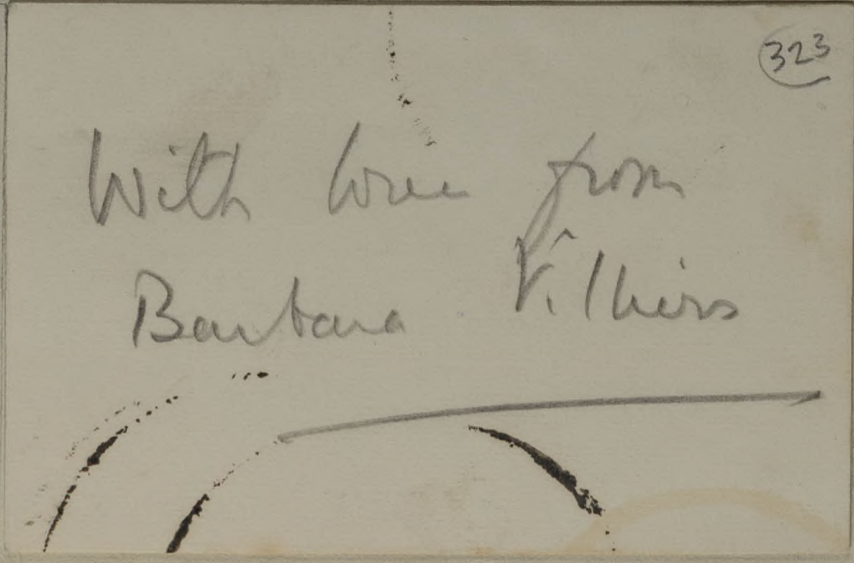 323
With love from
Barbara Villiers